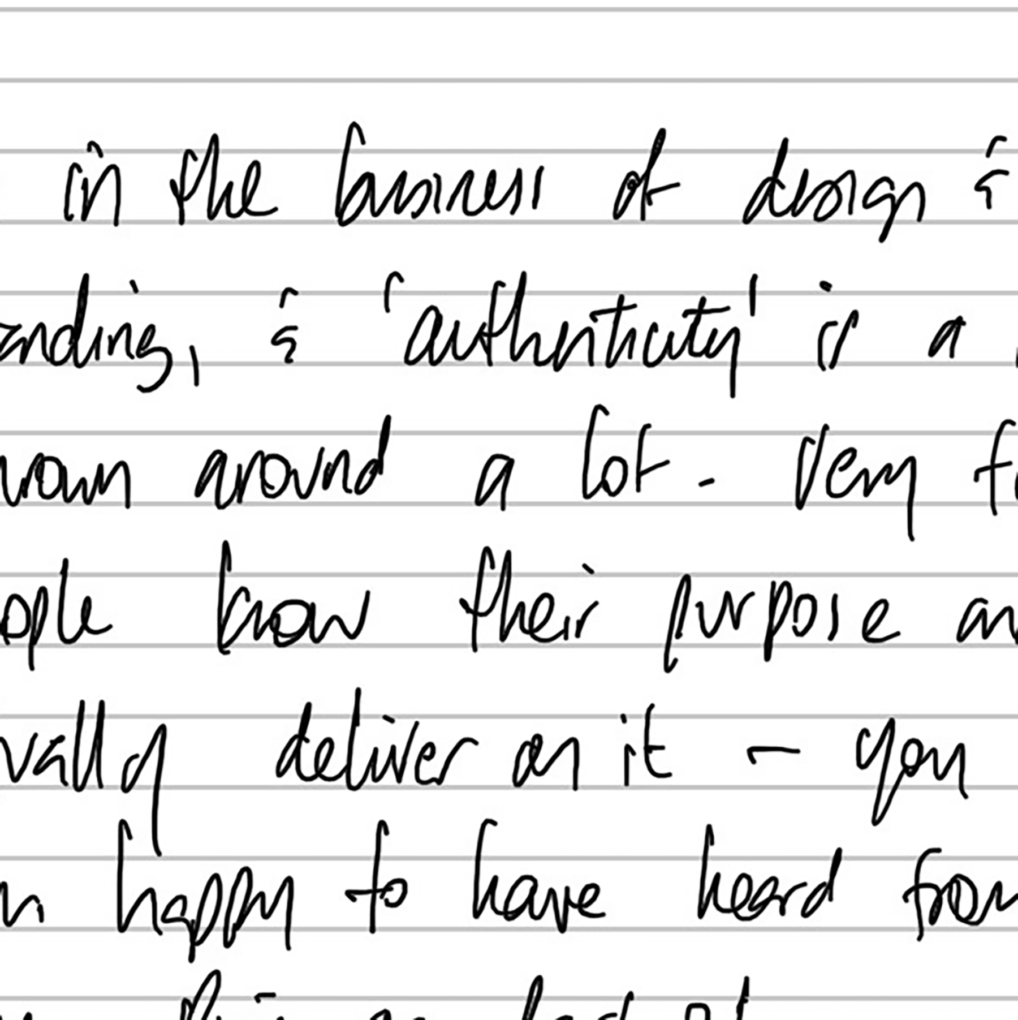 in the business of design &
anding, & 'authenticity' is a
rown around a lot. Very f
ople know their purpose an
deliver on it - you
m happy to have heard from